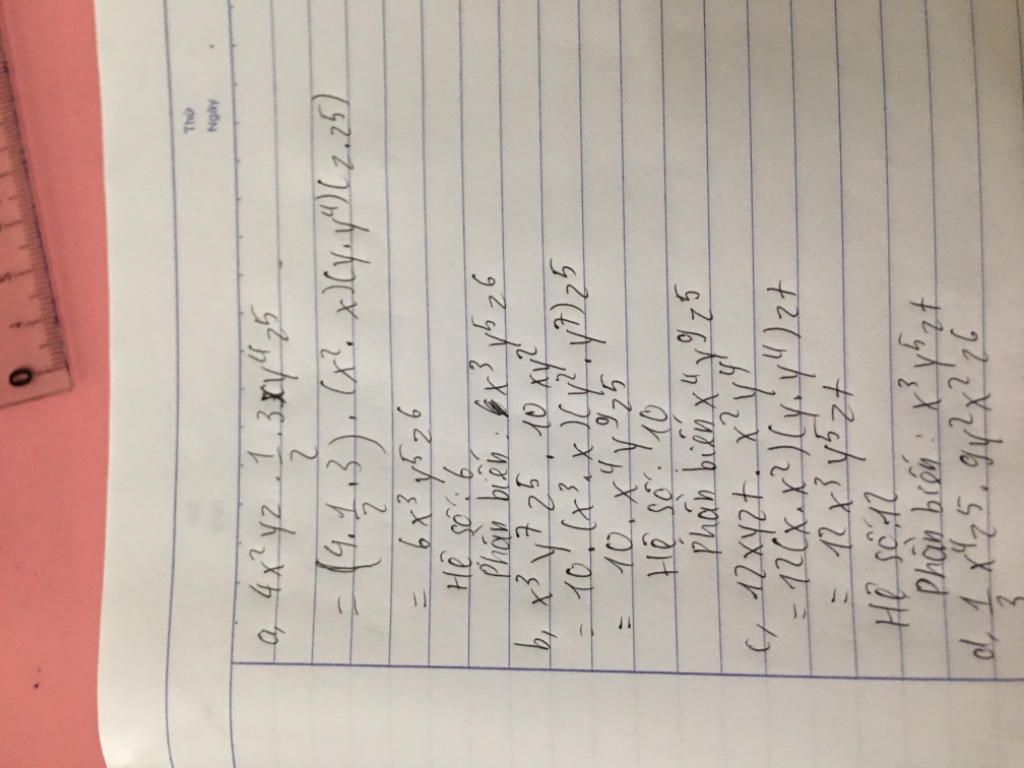 Thứ
Ngày
a, 4x²yz . 1/2 . 3xy⁴z⁵
= (4 . 1/2 . 3) . (x² . x)(y . y⁴)(z . z⁵)
= 6x³y⁵z⁶
Hệ số: 6
Phần biến: x³y⁵z⁶
b, x³y⁷z⁵ . 10xy²
= 10 . (x³ . x)(y² . y⁷)z⁵
= 10 . x⁴y⁹z⁵
Hệ số: 10
Phần biến x⁴y⁹z⁵
c, 12xyzt . x²y⁴
= 12(x . x²)(y . y⁴)zt
= 12x³y⁵zt
Hệ số: 12
Phần biến: x³y⁵zt
d, 1/3 x⁴z⁵ . 9y²x²z⁶
0